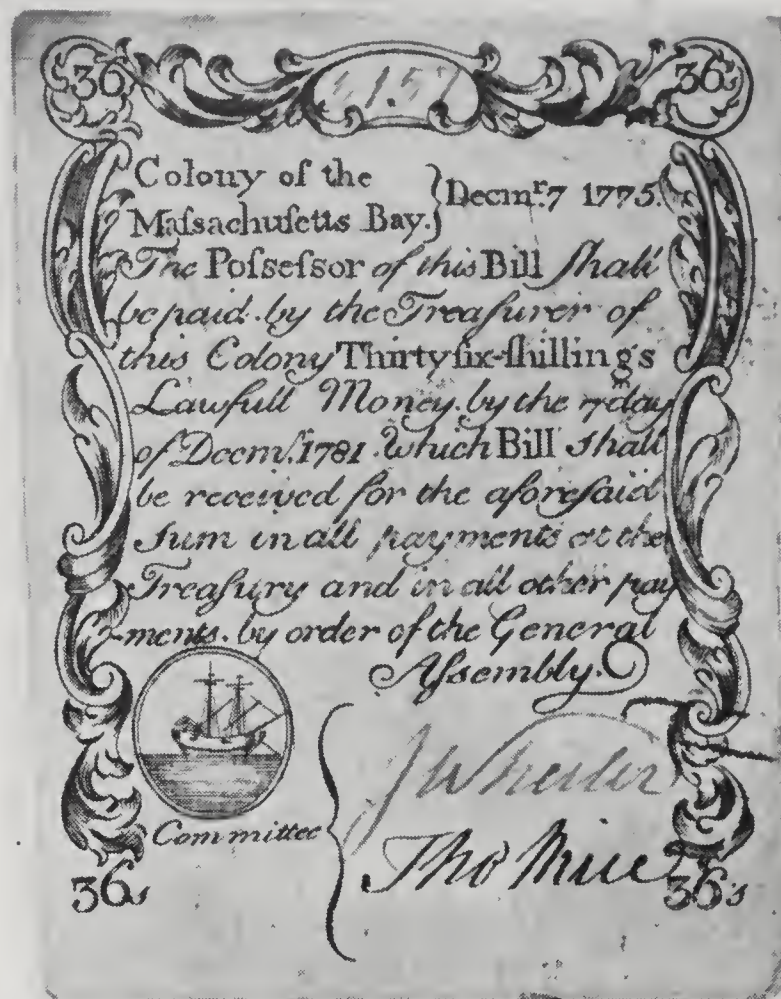 36 36s
Colony of the
Maſsachuſetts Bay. } Decmr. 7 1775.
The Poſseſsor of this Bill ſhall
be paid by the Treaſurer of
this Colony Thirty ſix-ſhillings
Lawfull Money. by the 7 day
of Decmr. 1781. which Bill ſhall
be received for the aforeſaid
Sum in all payments at the
Treaſury and in all other pay
-ments. by order of the General
Aſsembly.
J Wheeler
Committee
Tho
36s 36s